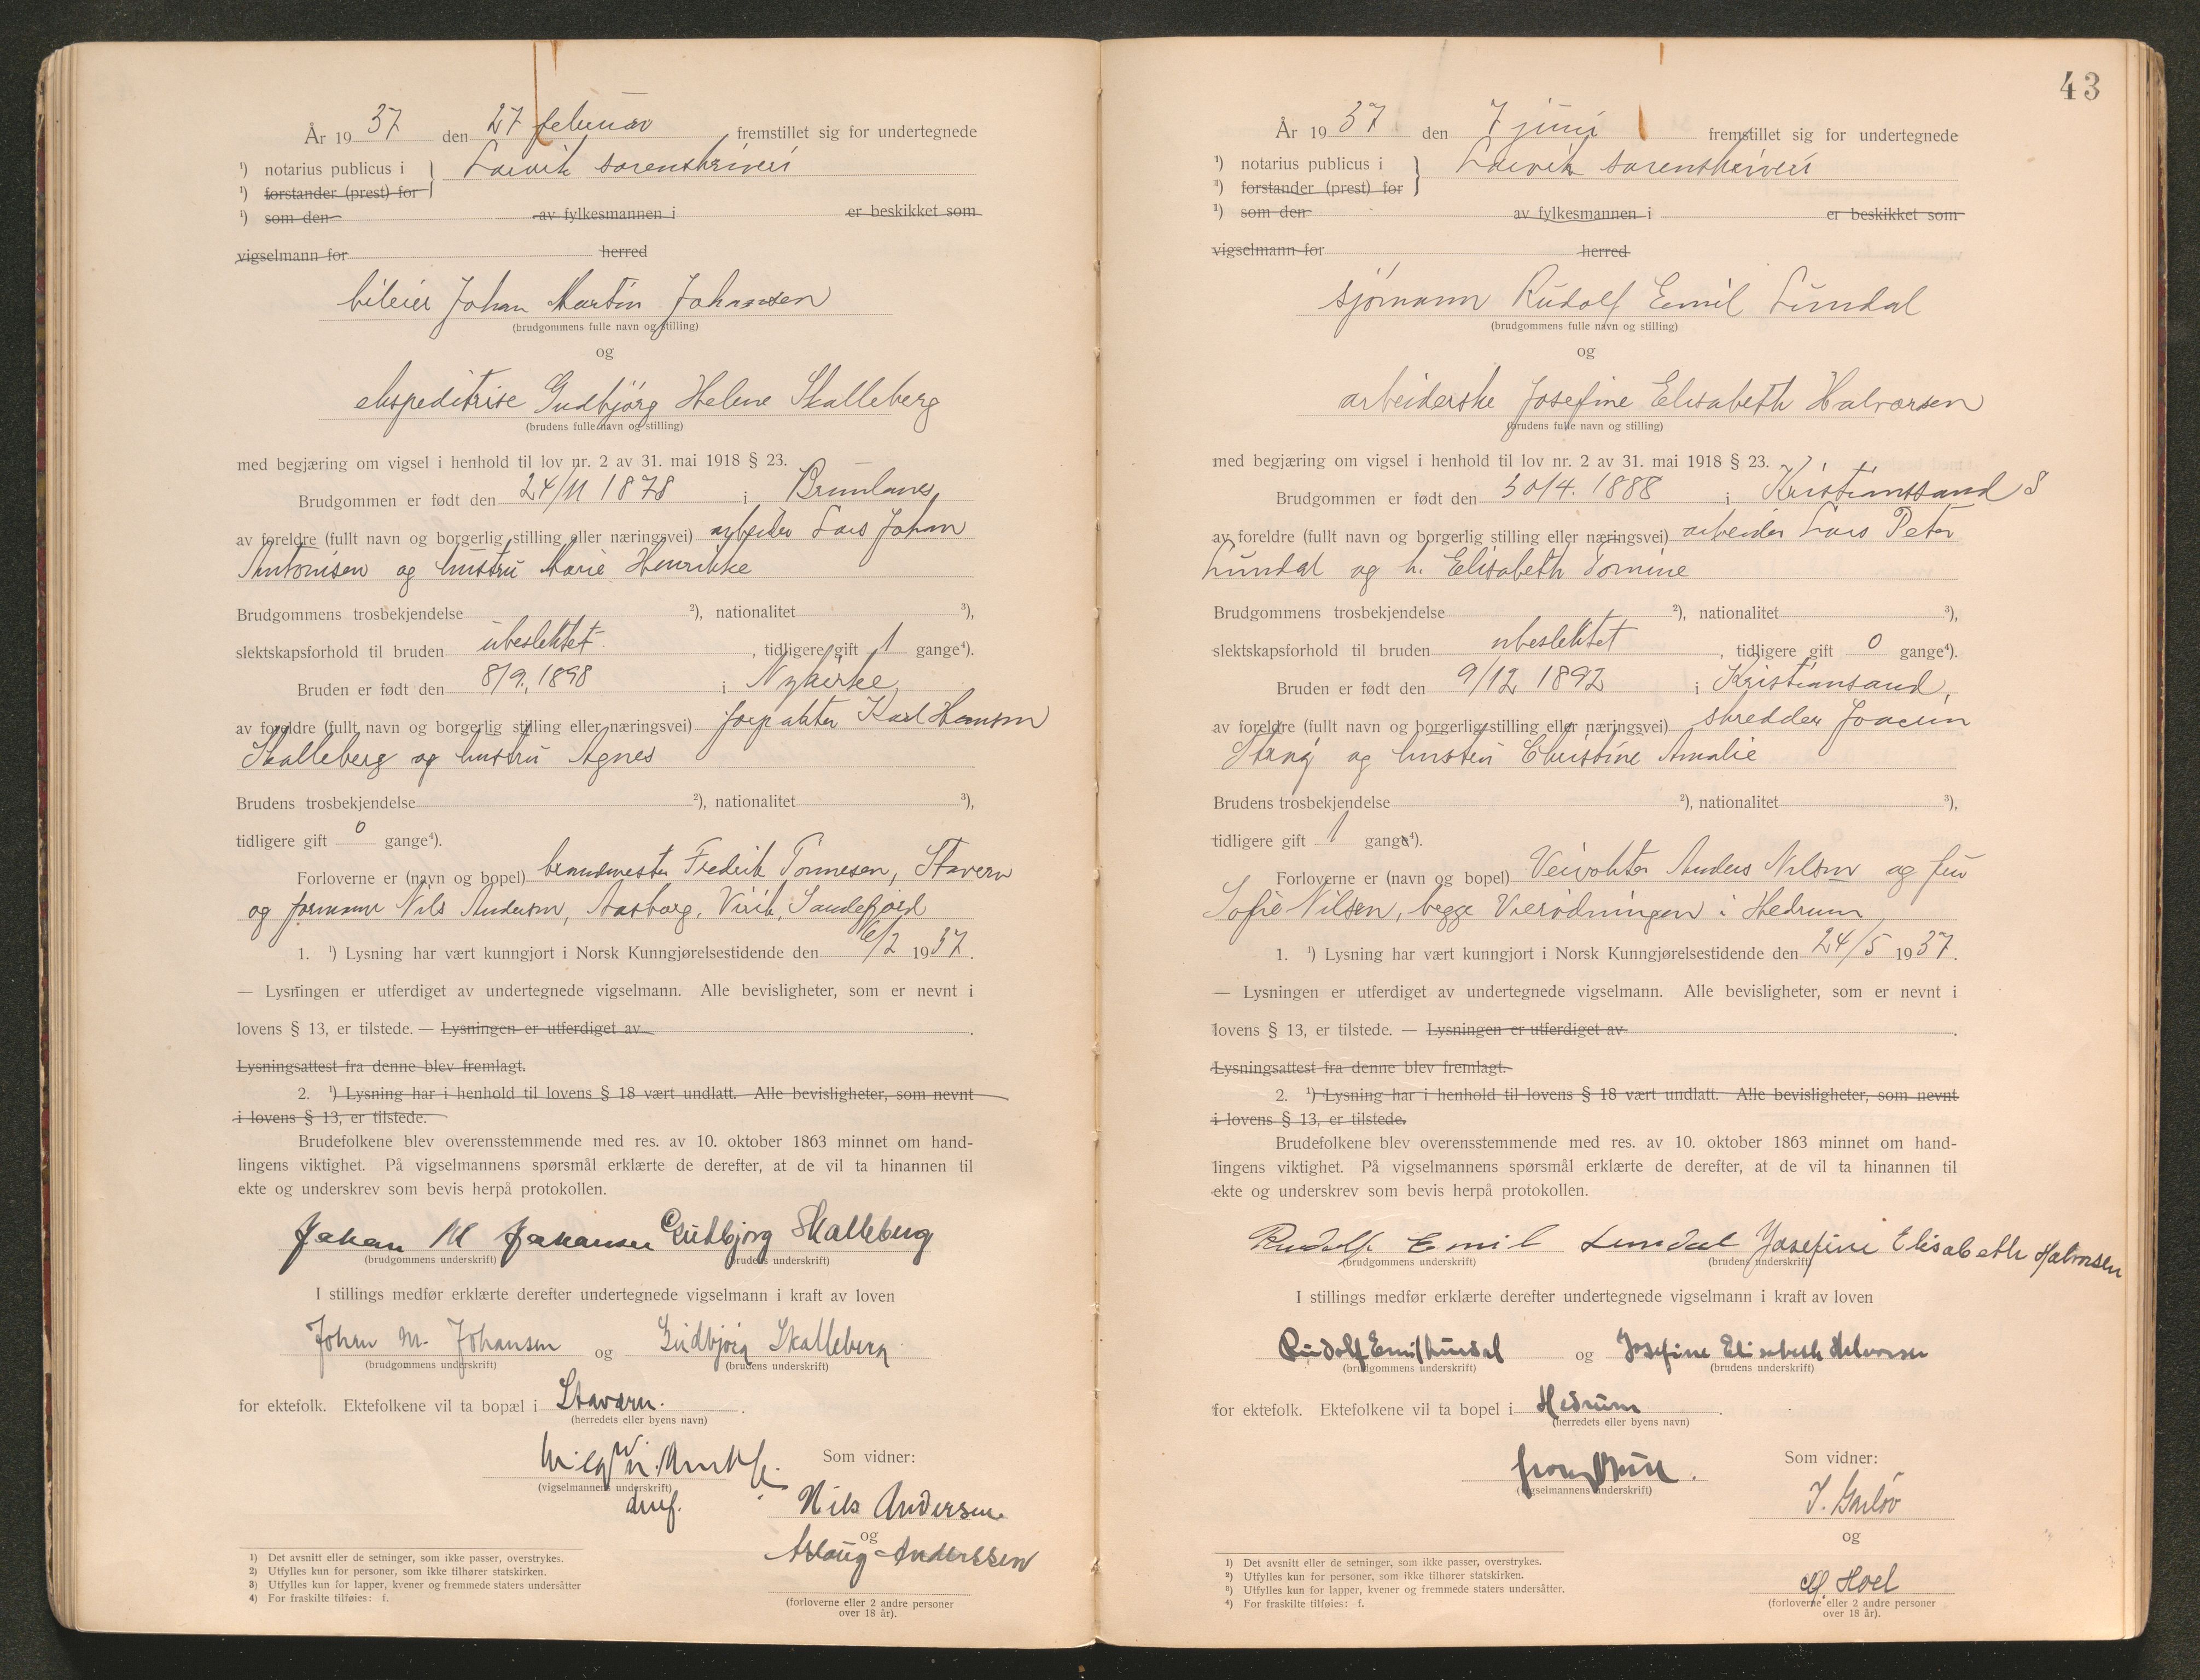 År 1937 den 27 februar fremstillet sig for undertegnede
¹) notarius publicus i } Larvik sorenskriveri
¹) forstander (prest) for
¹) som den av fylkesmannen i er beskikket som
vigselmann for herred
bileier Johan Martin Johansen
(brudgommens fulle navn og stilling)
og
ekspeditrise Gudbjørg Helene Skalleberg
(brudens fulle navn og stilling)
med begjæring om vigsel i henhold til lov nr. 2 av 31. mai 1918 § 23.
Brudgommen er født den 24/11 1878 i Brunlanes,
av foreldre (fullt navn og borgerlig stilling eller næringsvei) arbeider Lars Johan
Antonisen og hustru Marie Henrikke
Brudgommens trosbekjendelse ²), nationalitet ³),
slektskapsforhold til bruden ubeslektet, tidligere gift 1 gange⁴).
Bruden er født den 8/9. 1898 i Nykirke,
av foreldre (fullt navn og borgerlig stilling eller næringsvei) forpakter Karl Hansen
Skalleberg og hustru Agnes
Brudens trosbekjendelse ²), nationalitet ³),
tidligere gift 0 gange⁴).
Forloverne er (navn og bopel) brandmester Fredrik Tønnesen, Stavern
og formann Nils Andersen, Aasborg, Virik, Sandefjord
1. ¹) Lysning har vært kunngjort i Norsk Kunngjørelsestidende den 6/2 1937.
— Lysningen er utferdiget av undertegnede vigselmann. Alle bevisligheter, som er nevnt i
lovens § 13, er tilstede. — Lysningen er utferdiget av .
Lysningsattest fra denne blev fremlagt.
2. ¹) Lysning har i henhold til lovens § 18 vært undlatt. Alle bevisligheter, som nevnt
i lovens § 13, er tilstede.
Brudefolkene blev overensstemmende med res. av 10. oktober 1863 minnet om hand-
lingens viktighet. På vigselmannens spørsmål erklærte de derefter, at de vil ta hinannen til
ekte og underskrev som bevis herpå protokollen.
Johan M Johansen Gudbjørg Skalleberg
(brudgommens underskrift) (brudens underskrift)
I stillings medfør erklærte derefter undertegnede vigselmann i kraft av loven
Johan M. Johansen og Gudbjørg Skalleberg
(brudgommens underskrift) (brudens underskrift)
for ektefolk. Ektefolkene vil ta bopæl i Stavern.
(herredets eller byens navn)
Som vidner:
(vigselmannens underskrift)
Nils Andersen
og
Aslaug Anderssen
(forloverne eller 2 andre personer
over 18 år).
1) Det avsnitt eller de setninger, som ikke passer, overstrykes.
2) Utfylles kun for personer, som ikke tilhører statskirken.
3) Utfylles kun for lapper, kvener og fremmede staters undersåtter
4) For fraskilte tilføies: f.
43
År 1937 den 7 juni fremstillet sig for undertegnede
¹) notarius publicus i } Larvik sorenskriveri
¹) forstander (prest) for
¹) som den av fylkesmannen i er beskikket som
vigselmann for herred
sjømann Rudolf Emil Lundal
(brudgommens fulle navn og stilling)
og
arbeiderske Josefine Elisabeth Halvorsen
(brudens fulle navn og stilling)
med begjæring om vigsel i henhold til lov nr. 2 av 31. mai 1918 § 23.
Brudgommen er født den 30/4. 1888 i Kristianssand S
av foreldre (fullt navn og borgerlig stilling eller næringsvei) arbeider Lars Peter
Lundal og h. Elisabeth Tomine
Brudgommens trosbekjendelse ²), nationalitet ³),
slektskapsforhold til bruden ubeslektet, tidligere gift 0 gange⁴).
Bruden er født den 9/12 1892 i Kristiansand,
av foreldre (fullt navn og borgerlig stilling eller næringsvei) skredder Joacim
Stray og hustru Christine Amalie
Brudens trosbekjendelse ²), nationalitet ³),
tidligere gift 1 gange⁴).
Forloverne er (navn og bopel) Veivokter Anders Nilsen og fru
Sofie Nilsen, begge i Hedrum
1. ¹) Lysning har vært kunngjort i Norsk Kunngjørelsestidende den 24/5 1937.
— Lysningen er utferdiget av undertegnede vigselmann. Alle bevisligheter, som er nevnt i
lovens § 13, er tilstede. — Lysningen er utferdiget av .
Lysningsattest fra denne blev fremlagt.
2. ¹) Lysning har i henhold til lovens § 18 vært undlatt. Alle bevisligheter, som nevnt
i lovens § 13, er tilstede.
Brudefolkene blev overensstemmende med res. av 10. oktober 1863 minnet om hand-
lingens viktighet. På vigselmannens spørsmål erklærte de derefter, at de vil ta hinannen til
ekte og underskrev som bevis herpå protokollen.
Rudolf Emil Lundal Josefine Elisabeth Halvorsen
(brudgommens underskrift) (brudens underskrift)
I stillings medfør erklærte derefter undertegnede vigselmann i kraft av loven
Rudolf Emil Lundal og Josefine Elisabeth Halvorsen
(brudgommens underskrift) (brudens underskrift)
for ektefolk. Ektefolkene vil ta bopel i Hedrum.
(herredets eller byens navn)
Som vidner:
(vigselmannens underskrift)
og
Hoel
(forloverne eller 2 andre personer
over 18 år).
1) Det avsnitt eller de setninger, som ikke passer, overstrykes.
2) Utfylles kun for personer, som ikke tilhører statskirken.
3) Utfylles kun for lapper, kvener og fremmede staters undersåtter.
4) For fraskilte tilføies: f.